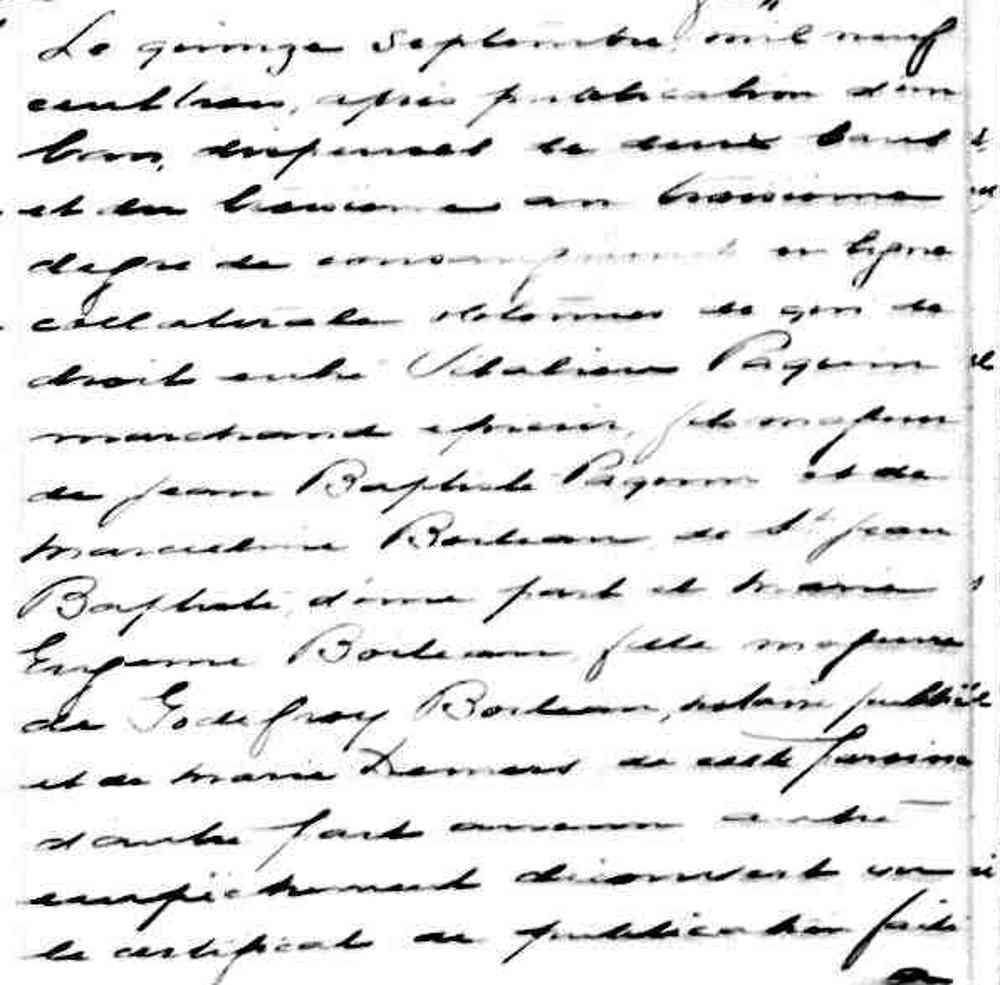 Le quinze Septembre mil neuf
cent trois, après publication d'un
ban, dispenses de deux bans
et du troisieme au troisieme
degre de consanguinité en ligne
collaterale obtenues de qui de
droit entre Vitalien Paquin
marchand epicier, fils majeur
de Jean Baptiste Paquin et de
Marceline Boileau de St Jean
Baptiste d'une part et Marie
Eugenie Boileau fille majeure
de Godefroy Boileau, notaire public
et de Marie Demers de cette paroisse
d'autre part aucun autre
empêchement découvert vu
le certificat de publication faite